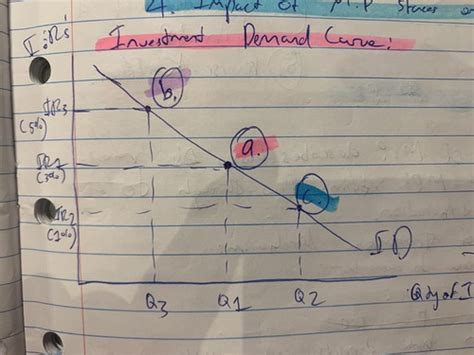 4. Impact of M.P stances
Investment Demand Curve:
b.
IR3
(5%)
a.
IR1
(3%)
c.
IR2
(1%)
ID
Q3 Q1 Q2 Qdy of I